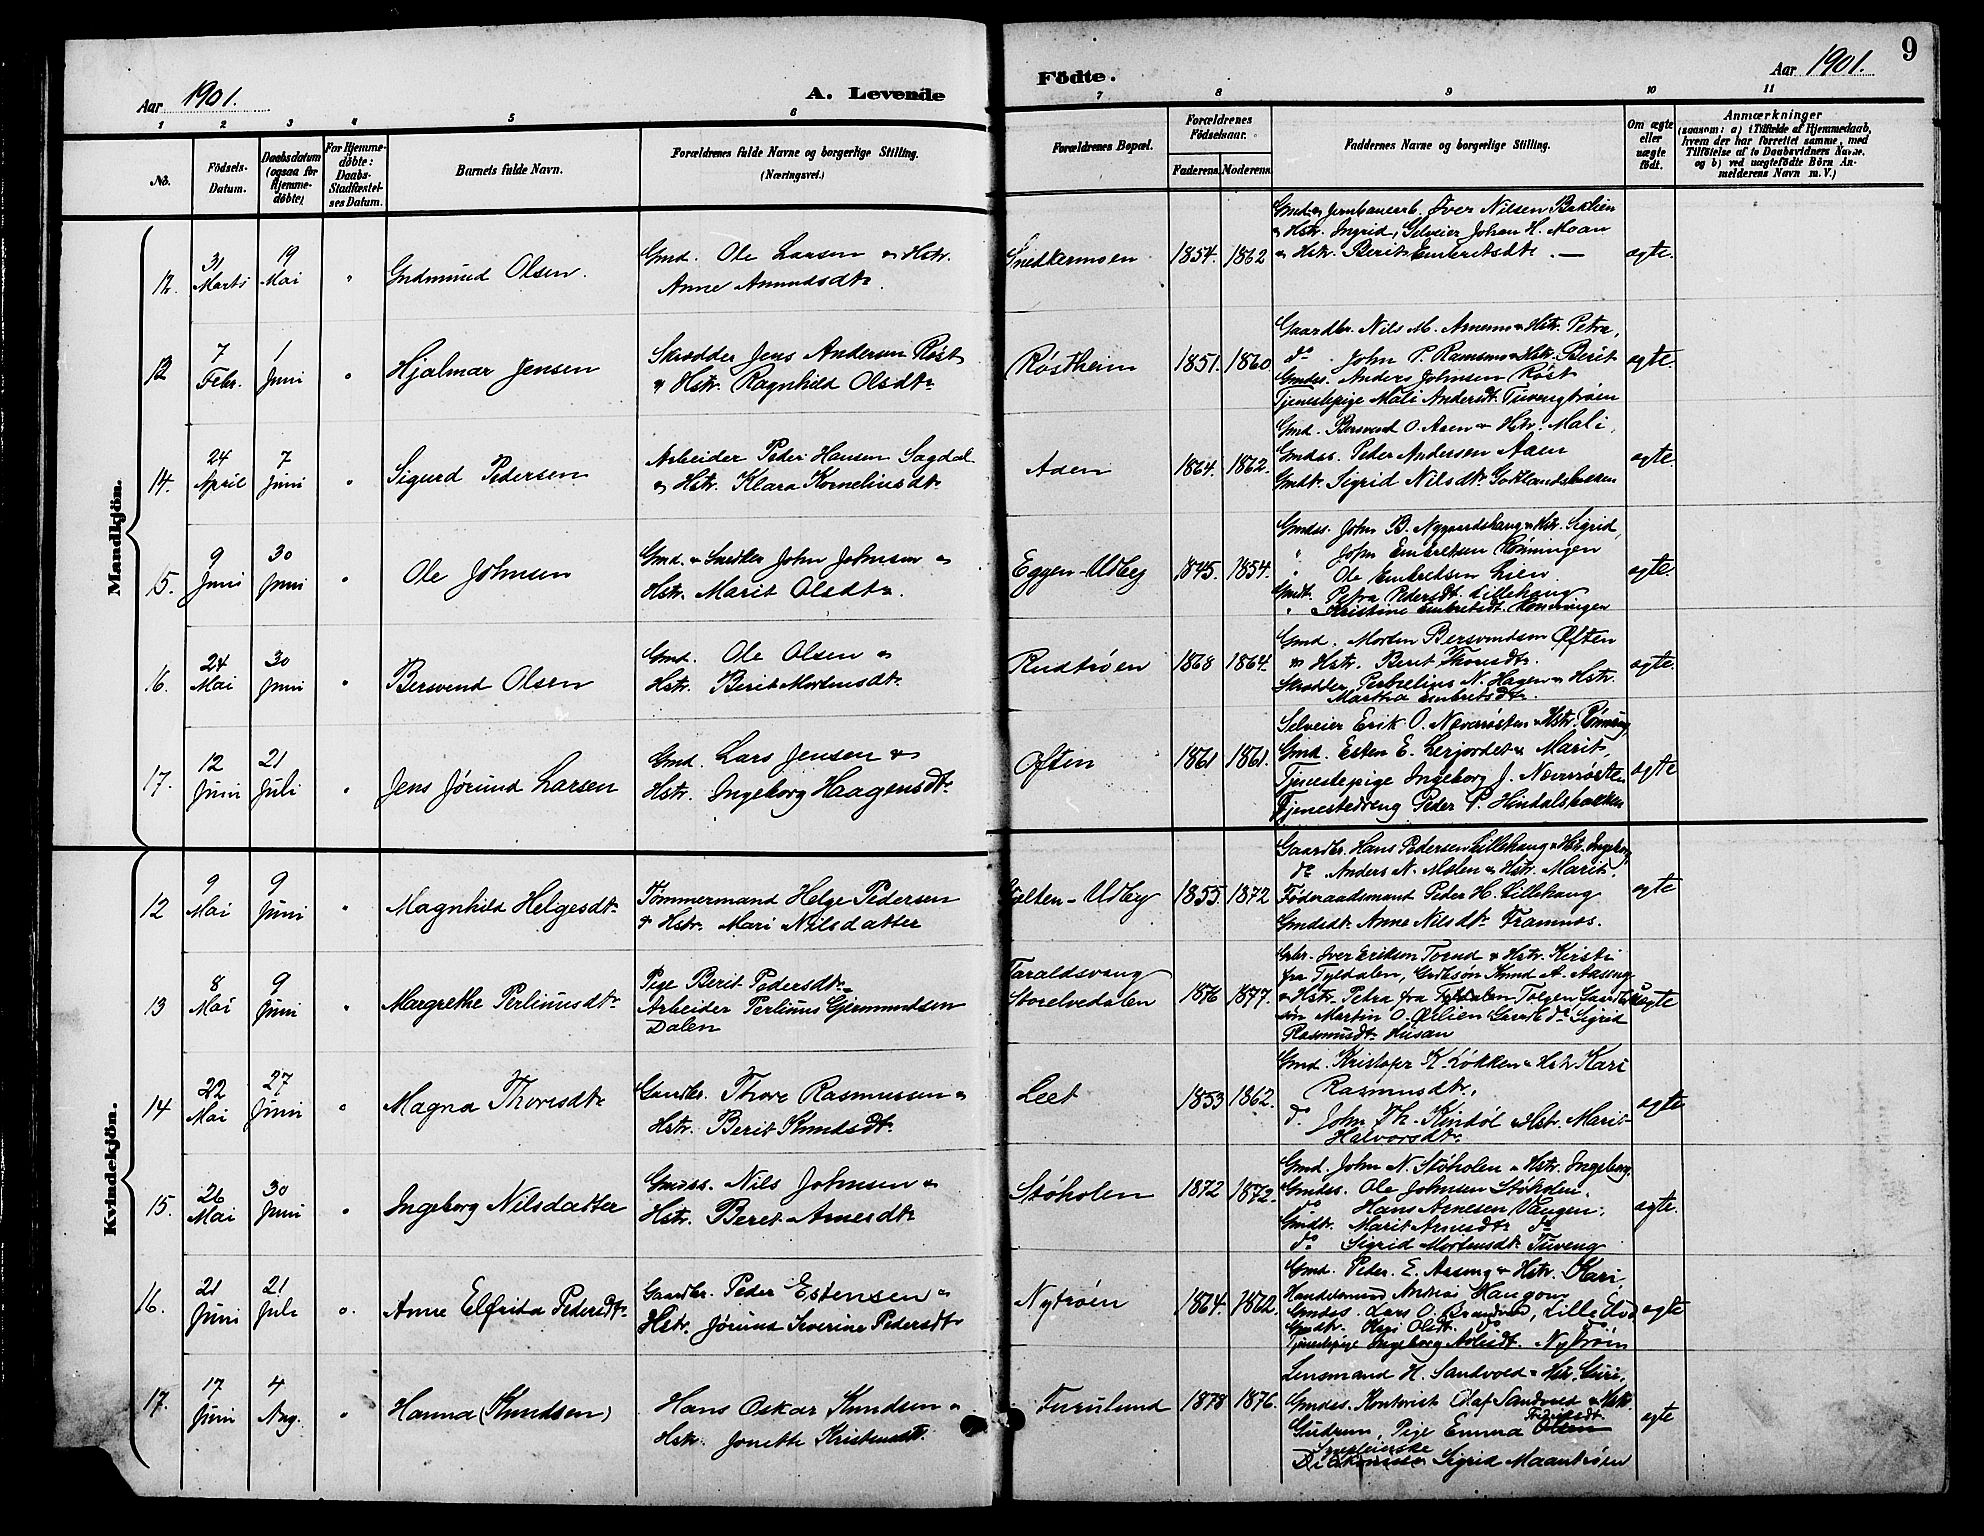 Aar 1901.
A. Levende
Fødte.
Aar 1901.
9
1 2 3 4 5 6 7 8 9 10 11
No.
Fødsels-
Datum.
Daabsdatum
(ogsaa for
Hjemme-
døbte)
For Hjemme-
døbte:
Daabs-
Stadfæstel-
ses Datum.
Barnets fulde Navn.
Forældrenes fulde Navne og borgerlige Stilling.
(Næringsvei.)
Forældrenes Bopæl.
Forældrenes
Fødselsaar.
Faderens
Moderens
Faddernes Navne og borgerlige Stilling.
Om ægte
eller
uægte
født.
Anmærkninger
(saasom: a) i Tilfælde af Hjemmedaab,
hvem der har forrettet samme, med
Tilføielse af to Daabsvidners Navne,
og b) ved uægtefødte Børn An-
melderens Navn m. V.)
Mandkjön.
12. 31 Marts 19 Mai " Gudmund Olsen.
Gmd. Ole Larsen & Hstr.
Anne Amundsdtr.
Snedkermoen 1854. 1862
Gmd. & Jernbanearb. Iver Nilsen Bakliën
& Hstr. Ingrid, Selveier Johan H. Moan
& Hstr. Berit Embretsdtr. —
ægte.
12 7 Febr. 1 Juni " Hjalmar Jensen
Skrædder Jens Andersen Røst
& Hstr. Ragnhild Olsdtr.
Røstheim 1851. 1860
Gaardbr. Nils M. Arnemo & Hstr. Petra,
do John P. Ramsmo & Hstr. Berit
Gmdss. Anders Johnsen Røst
Tjenestepige Mali Andersdt. Tuvengtrøen
ægte.
14. 24 April 7 Juni " Sigurd Pedersen
Arbeider Peder Hansen Sagdal
& Hstr. Klara Korneliusdtr.
Aaen 1864. 1862.
Gmd. Bersvend O. Aaen & Hstr. Mali,
Gmdss. Peder Andersen Aaen
Gmdt. Sigrid Nilsdtr. Gotlandsbakken
ægte.
15. 9 Juni 30 Juni " Ole Johnsen
Gmd. & Snedker John Johnsen &
Hstr. Marit Olsdtr.
Eggen-Udby 1845. 1854.
Gmdss. John B. Nygaardshaug & Hstr. Sigrid,
" John Embretsen Rønningen
" Ole Embretsen Lien.
Gmdt. Petra Pedersdt. Lillehaug
" Kristine Embretsdt. Rønningen
ægte.
16. 24 Mai 30 Juni " Bersvend Olsen
Gmd. Ole Olsen &
Hstr. Berit Mortensdtr.
Rudtrøen 1868 1864.
Gmd. Morten Bersvendsen Øften
& Hstr. Berit Thoresdtr.
Skrædder Petrelius N. Hagen & Hstr.
Martha Embretsdtr.
ægte.
17. 12 Juni 21 Juli " Jens Jørund Larsen
Gmd. Lars Jensen &
Hstr. Ingeborg Haagensdtr.
Øften 1861 1861.
Selveier Erik O. Næverøsten & Hstr. Rønnaug,
Gmd. Esten E. Lerjordet & Marit,
Tjenestepige Ingeborg J. Næverøsten
Tjenestedreng Peder P. Hindalsbakken
ægte
Kvindekjön.
12 9 Mai 9 Juni " Magnhild Helgesdtr.
Tømmermand Helge Pedersen
& Hstr. Mari Nilsdatter
-Udby 1855. 1872
Gaardbr. Hans Pedersen Lillehaug & Hstr. Ingeborg,
do Anders N. Moen & Hstr. Marit.
Føderaadsmand Peder H. Lillehaug
Gmdsdt. Anne Nilsdtr. Framnes.
ægte
13 8 Mai 9 Juni " Margrethe Perliniusdtr.
Pige Berit Pedersdtr.
Arbeider Perlinus Gjermundsen
Dalen
Taraldsvang
Storelvedalen 1876 1877.
Gbr. Iver Eriksen Torud & Hstr. Kirsti
fra Tyldalen, Knud A. Aaseng
& Hstr. Petra fra Tyldalen Tolgen,
søn Martin O. Ørlien, do Sigrid
Rasmusdtr. Husan
uægte
14 22 Mai 27 Juni " Magna Thoresdtr.
Gaardbr. Thore Rasmussen &
Hstr. Berit Knudsdtr.
Leet 1853 1862.
Gmd. Kristofer K. Løkken & Hstr. Kari
Rasmusdtr.,
do John Th. Kindøl & Hstr. Marit
Halvorsdtr.
ægte
15. 26 Mai 30 Juni " Ingeborg Nilsdatter
Gmdss. Nils Johnsen &
Hstr. Beret Arnesdtr.
Støholen 1872 1872.
Gmd. John N. Støholen & Hstr. Ingeborg,
Gmdss. Ole Johnsen Støholen.
do Hans Arnesen Vangen,
Gmdt. Marit Arnesdtr. do
do Sigrid Mortensdt. Tuveng
ægte.
16. 21 Juni 21 Juli " Anne Elfrida Pedersdtr.
Gaardbr. Peder Estensen &
Hstr. Jørund Severine Pedersdtr.
Nytrøen 1864. 1862.
Gmd. Peder E. Aaseng & Hstr. Kari,
Handelsmand Andreas Haugom
Gmdss. Lars O. Brandvold, Lille Elvd.
Gmdtr. Kari Olsdt. do do
Tjenestepige Ingeborg Arnesdt. Nytrøen
ægte
17. 17 Juni 4 Aug. " Hanna (Knudsen)
Hans Oskar Knudsen &
Hstr. Jonette Kristensdt.
Furulund 1878 1876.
Lensmand H. Sandvold & Hstr. Guri,
Gmdss. Kontorist Olaf Sandvold & Hstr.
Gudrun, Pige Emma Olsen
Sigrid Moantrøen
ægte